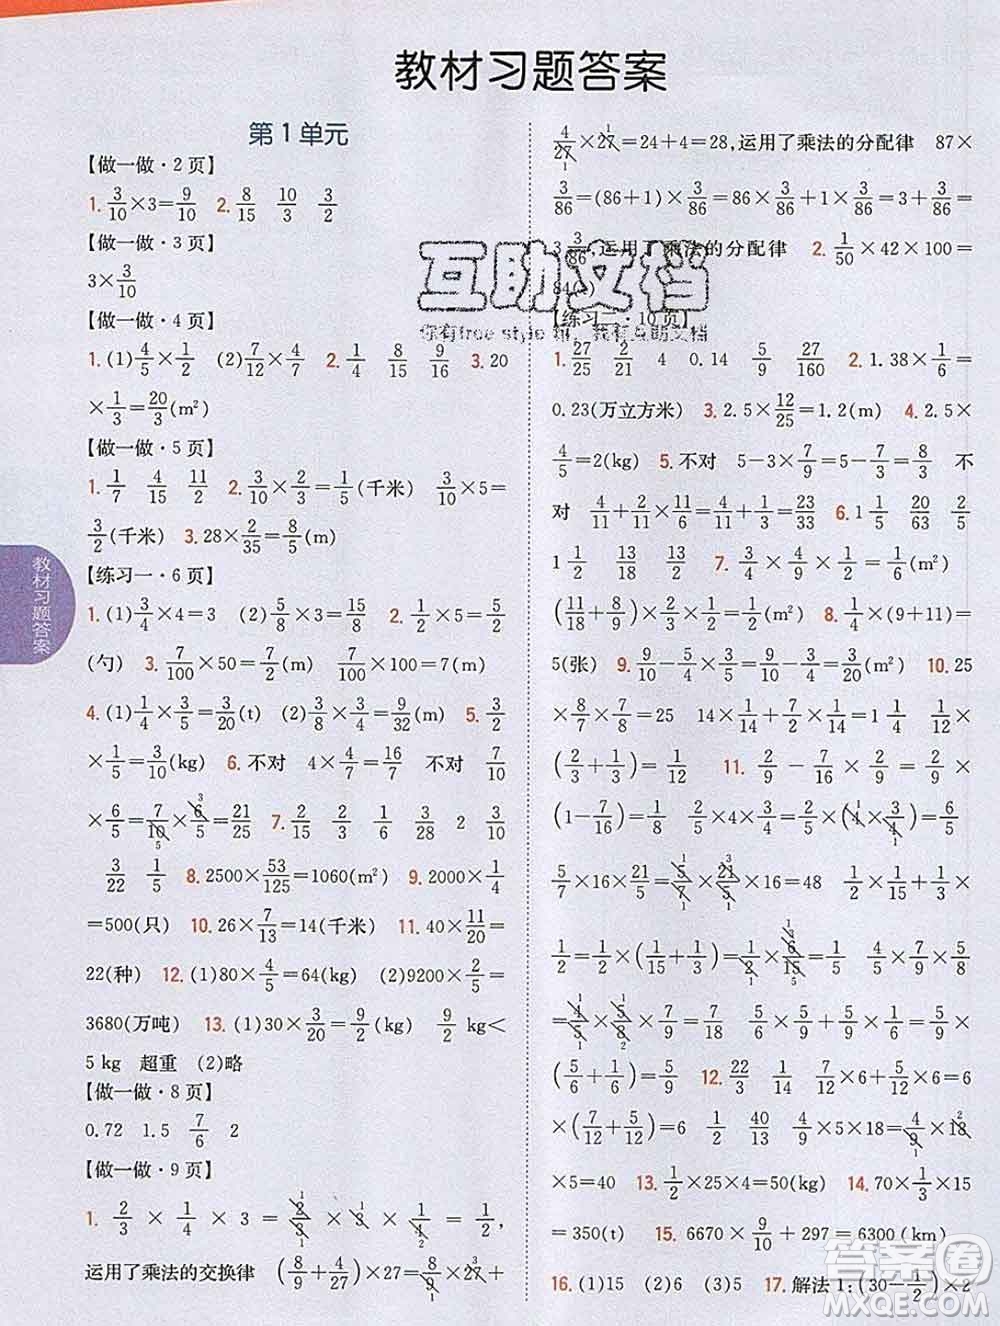 教材习题答案
第1单元
【做一做·2页】
1. 3/10×3=9/10 2. 8/15 10/3 3/2
【做一做·3页】
3×3/10
【做一做·4页】
1.(1)4/5×1/2 (2)7/12×4/7 2. 1/4 8/15 9/16 3.20
×1/3=20/3(m²)
【做一做·5页】
1. 1/7 4/15 11/2 2. 3/10×2/3=1/5(千米) 3/10×5=
3/2(千米) 3.28×2/35=8/5(m)
【练习一·6页】
1.(1)3/4×4=3 (2)5/8×3=15/8 2. 1/2×5=5/2
(勺) 3. 7/100×50=7/2(m) 7/100×100=7(m)
4.(1)1/4×3/5=3/20(t) (2)3/8×3/4=9/32(m) 5. 3/2
×1/5=3/10(kg) 6.不对 4×4/7=16/7 不对 7/10
×6/5=7/10×6/5=21/25 7. 2/15 1/6 3/28 2 3/10
3/22 1/55 8.2500×53/125=1060(m²) 9.2000×1/4
=500(只) 10.26×7/13=14(千米) 11.40×11/20=
22(种) 12.(1)80×4/5=64(kg) (2)9200×2/5=
3680(万吨) 13.(1)30×3/20=9/2(kg) 9/2 kg<
5 kg 超重 (2)略
【做一做·8页】
0.72 1.5 7/6 2
【做一做·9页】
1. 2/3×1/4×3=2/3×3×1/4=1/2,
运用了乘法的交换律 (8/9+4/27)×27=8/9×27+
4/27×27=24+4=28,运用了乘法的分配律 87×
3/86=(86+1)×3/86=86×3/86+1×3/86=3+3/86=
3 3/86,运用了乘法的分配律 2. 1/50×42×100=
84( )
【练习二·10页】
1. 27/25 2/21 4 0.14 5/9 27/160 2.1.38×1/6=
0.23(万立方米) 3.2.5×12/25=1.2(m) 4.2.5×
4/5=2(kg) 5.不对 5-3×7/9=5-7/3=8/3 不
对 4/11+2/11×11/6=4/11+1/3=23/33 6.1 1/5 20/63 2/5
1 1/2 1/35 7/18 7. 2/3×1/2×1/2=1/6(m²)
(11/18+7/18)×1/2×1/2=1/4(m²) 8. 1/4×(9+11)=
5(张) 9. 9/10-5/4×3/5=3/20(m²) 10.25
×8/7×7/8=25 14×1/14+7/2×1/14=1 1/4 1/12×
(2/3+1/3)=1/12 11. 2/9-7/16×2/9=2/9×
(1-7/16)=1/8 4/5×3/4×4=4/5×(4×3/4)=12/5
5/7×16×21/5=5/7×21/5×16=48 1/2×1/15+1/3×
1/2=1/2×(1/15+1/3)=1/2×6/15=1/5 4/5×7/9×5/8
=4/5×5/8×7/9=7/18 5/6×5/9+5/9×1/6=5/9×
(5/6+1/6)=5/9 12. 22/3 1/14 7/12×6+5/12×6=6
×(7/12+5/12)=6 1/2 40/13 4/9×5×18=4/9×18
×5=40 13. 1/2×25×4=50(kg) 14.70×1/3×15
=350(t) 15. 6670×9/10+297=6300(km)
16.(1)15 (2)6 (3)5 17.解法1:(30-1/2)×2
教材习题答案
互助文档
答案圈
MXQE.COM